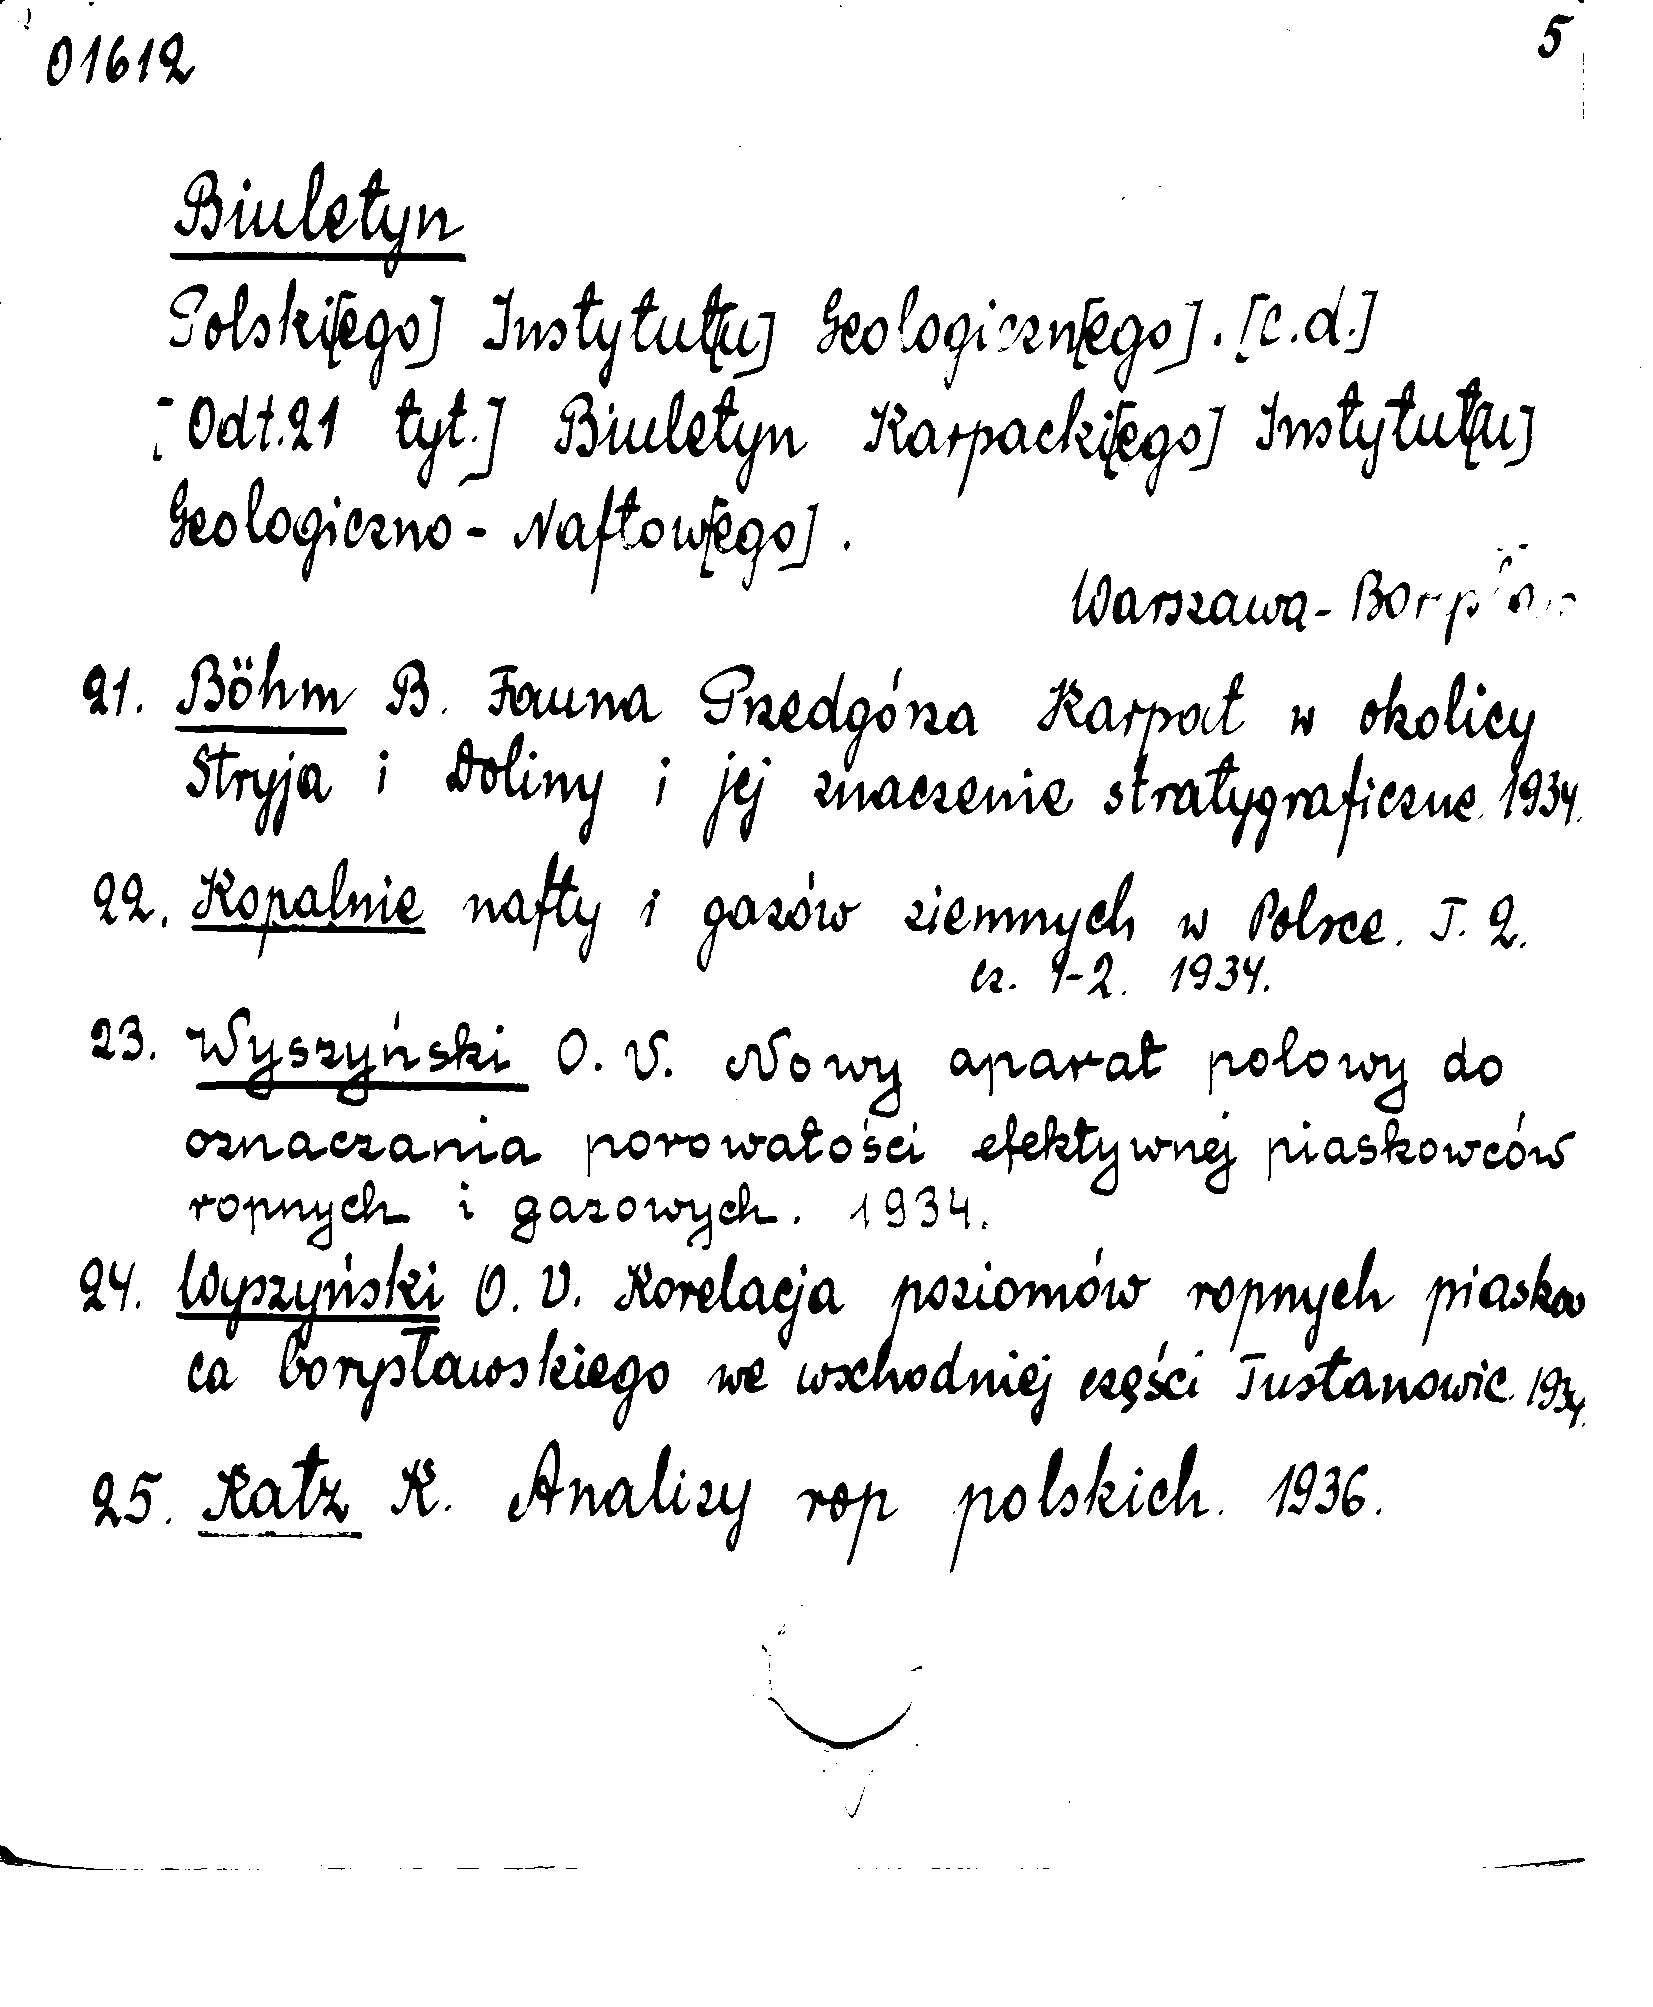 01612 5
Biuletyn
Polski[ego] Instytut[u] Geologiczn[ego]. [c.d.]
[Od t. 21 tyt.] Biuletyn Karpacki[ego] Instytut[u]
Geologiczno - Naftow[ego].
Warszawa -
21. Böhm B. Fauna Przedgórza Karpat w okolicy
Stryja i Doliny i jej znaczenie stratygraficzne. 1934.
22. Kopalnie nafty i gazów ziemnych w Polsce. T. 2.
cz. 1-2. 1934.
23. Wyszyński O. V. Nowy aparat polowy do
oznaczania porowatości efektywnej piaskowców
ropnych i gazowych. 1934.
24. Wyszyński O. V. Korelacja poziomów ropnych piaskow
ca borysławskiego we wschodniej części Tustanowic 1934.
25. Katz K. Analizy rop polskich. 1936.